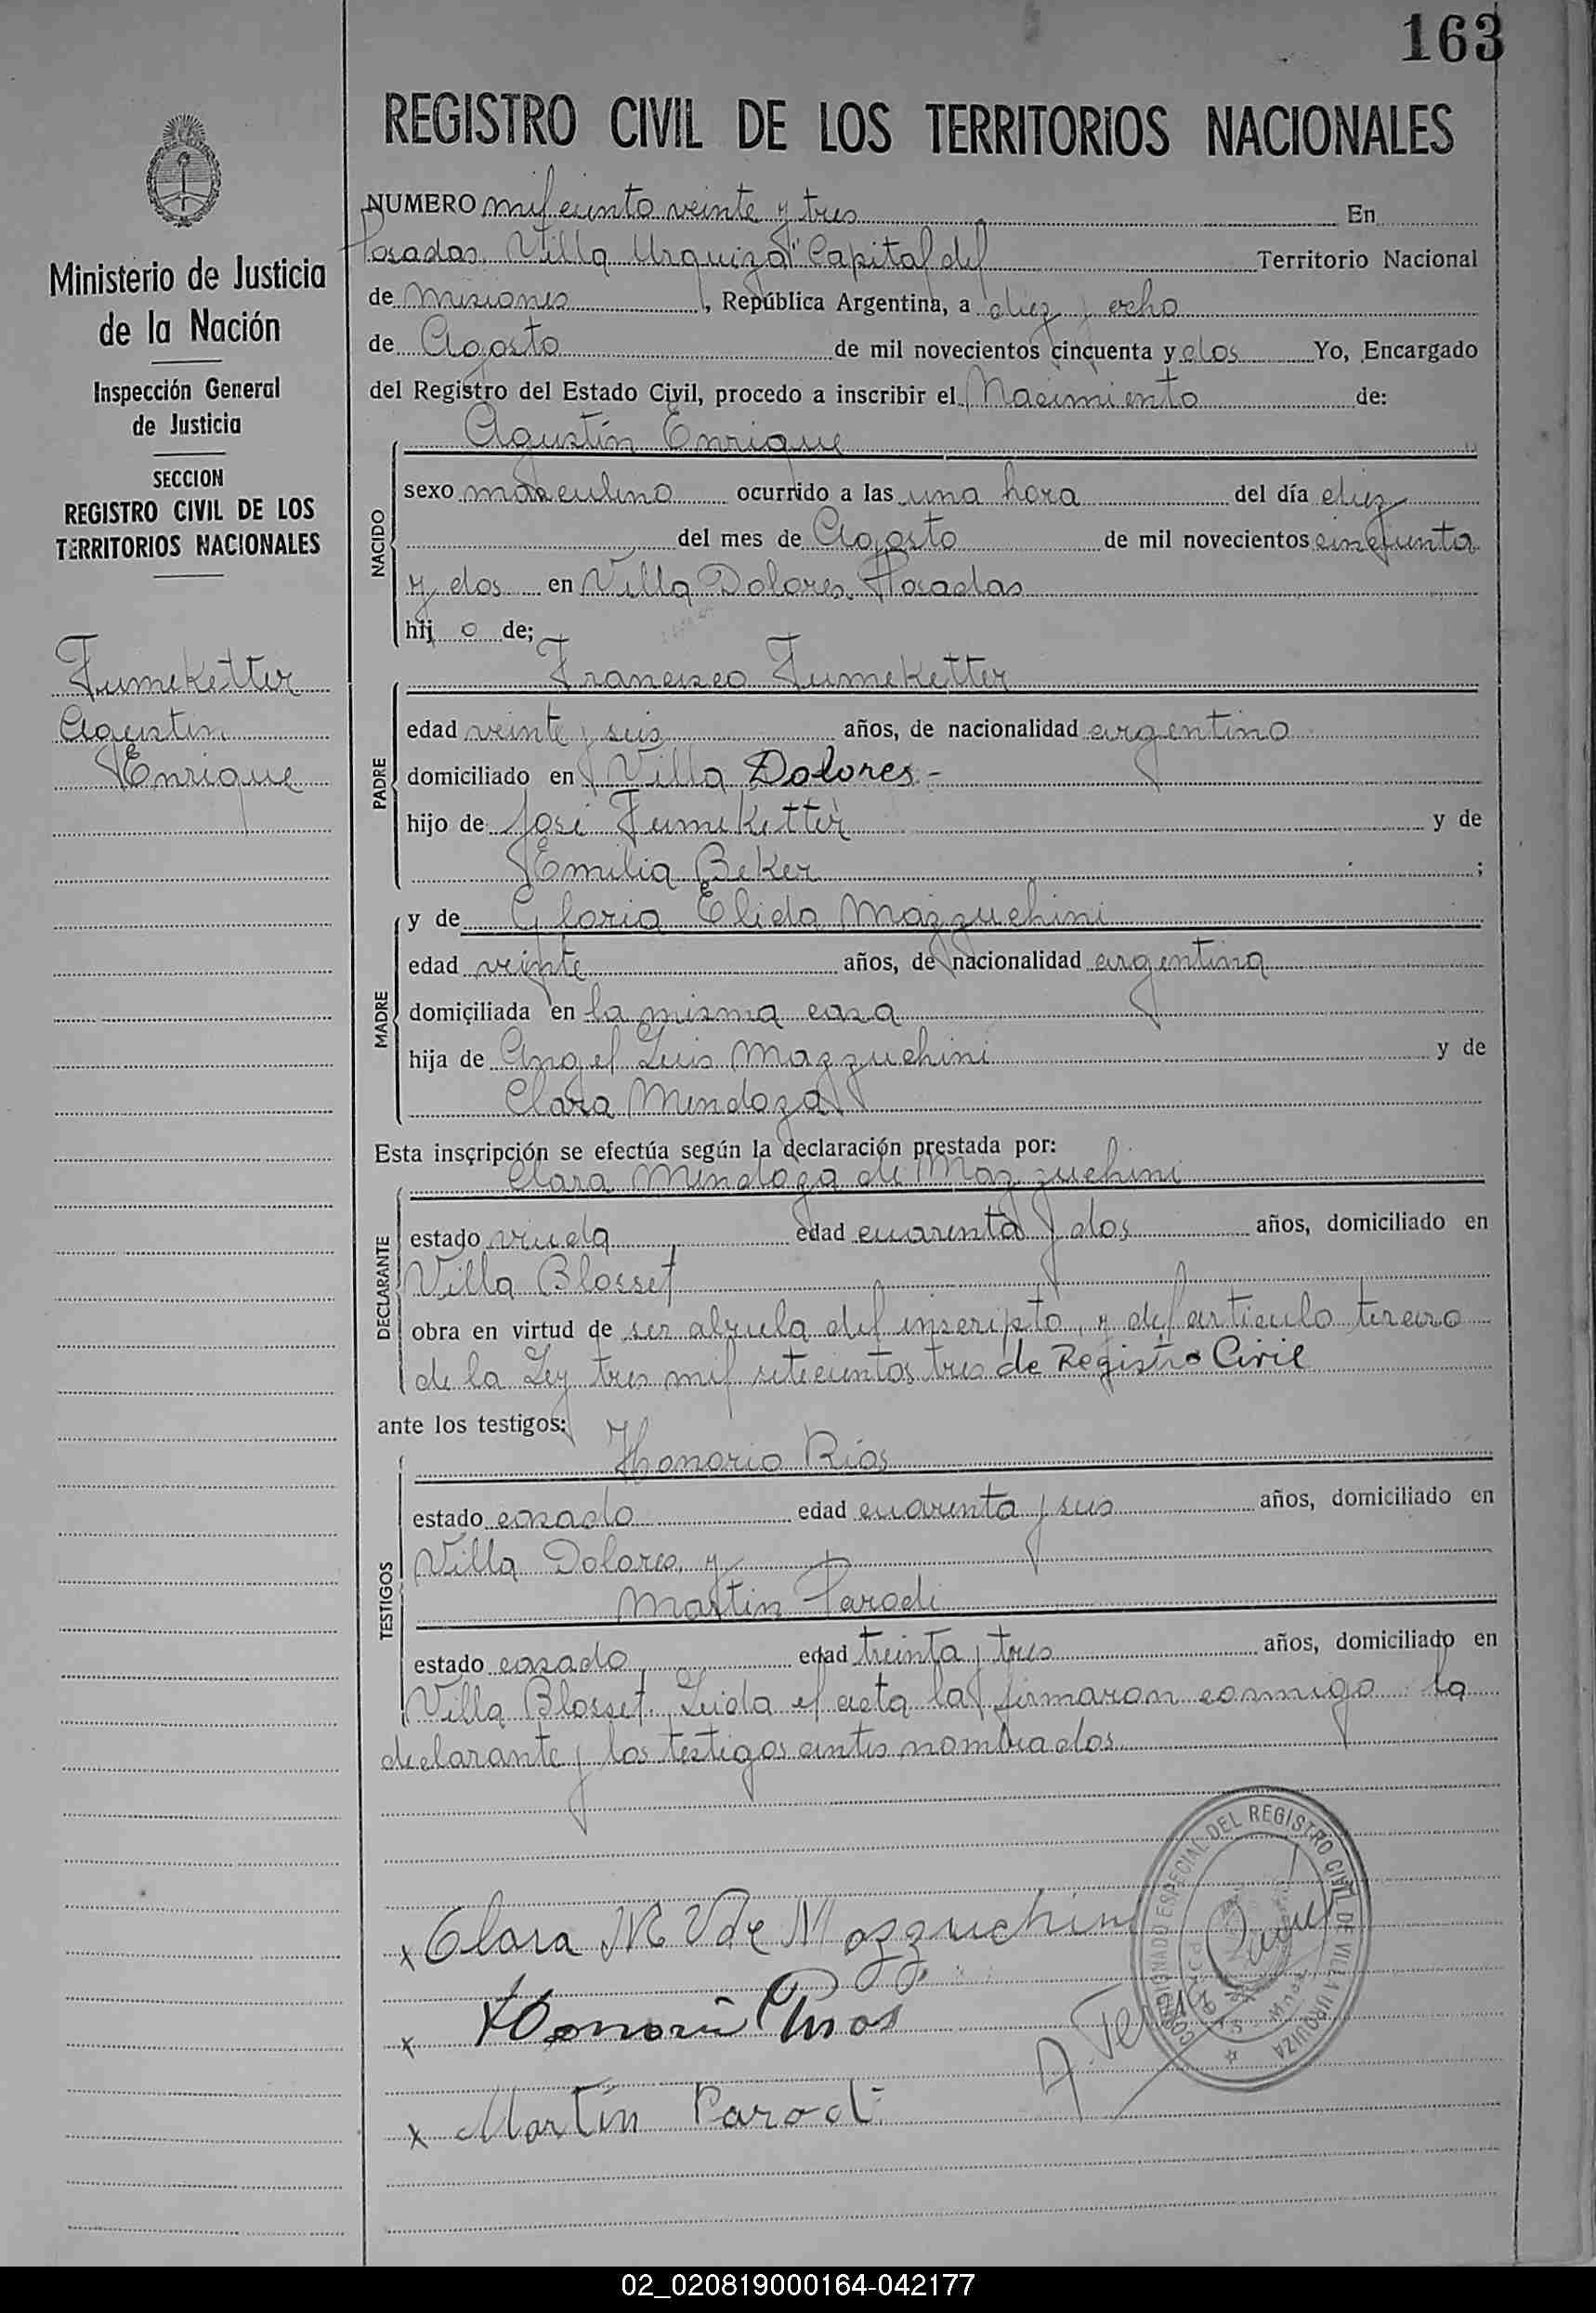 163
REGISTRO CIVIL DE LOS TERRITORIOS NACIONALES
Ministerio de Justicia
de la Nación
Inspección General
de Justicia
SECCION
REGISTRO CIVIL DE LOS
TERRITORIOS NACIONALES
Fumeketter
Agustin
Enrique
NUMERO mil ciento veinte y tres En
Posadas. Villa Urquiza" Capital del Territorio Nacional
de Misiones, República Argentina, a diez y ocho
de Agosto de mil novecientos cincuenta y dos Yo, Encargado
del Registro del Estado Civil, procedo a inscribir el Nacimiento de:
NACIDO
Agustín Enrique
sexo masculino ocurrido a las una hora del día diez
del mes de Agosto de mil novecientos cincuenta
y dos en Villa Dolores. Posadas
hij o de;
PADRE
Francisco Fumeketter
edad veinte y seis años, de nacionalidad argentino
domiciliado en Villa Dolores.-
hijo de José Fumeketter y de
Emilia Beker ;
MADRE
y de Gloria Elida Mazzuchini
edad veinte años, de nacionalidad argentina
domiciliada en la misma casa
hija de Angel Luis Mazzuchini y de
Clara Mendoza
Esta inscripción se efectúa según la declaración prestada por:
DECLARANTE
Clara Mendoza de Mazzuchini
estado viuda edad cuarenta y dos años, domiciliado en
Villa Blosset
obra en virtud de ser abuela del inscripto, y del artículo tercero
de la Ley tres mil setecientos tres de Registro Civil
ante los testigos:
TESTIGOS
Honorio Ríos
estado casado edad cuarenta y seis años, domiciliado en
Villa Dolores, y
Martin Parodi
estado casado edad treinta y tres años, domiciliado en
Villa Blosset. Leida el acta la firmaron conmigo la
declarante y los testigos antes nombrados.
x Clara M V de Mazzuchini
x Honorio Rios
x Martín Parodi
COMISIONADO ESPECIAL DEL REGISTRO CIVIL DE VILLA URQUIZA
02_020819000164-042177